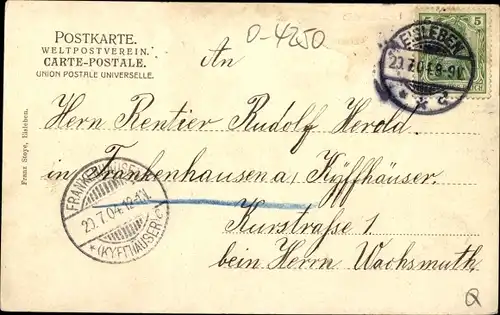 D-4250
POSTKARTE.
WELTPOSTVEREIN.
CARTE-POSTALE.
UNION POSTALE UNIVERSELLE.
An
5 5
EISLEBEN
20.7.04.8-9V.
* * c
Herrn Rentier Rudolf Herold.
in Frankenhausen a/ Kyffhäuser.
Kurstraße 1
beim Herrn Wachsmuth.
FRANKENHAUSEN
20.7.04.12-1N.
*(KYFFHÄUSER)*
Franz Stoye, Eisleben.
Q